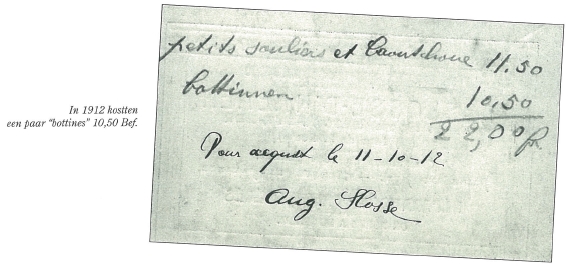 In 1912 kostten
een paar "bottines" 10,50 Bef.
petits souliers et Caoutchouc 11.50
bottinnen 10,50
22,00 fr
Pour acquit le 11-10-12
Aug. Slosse